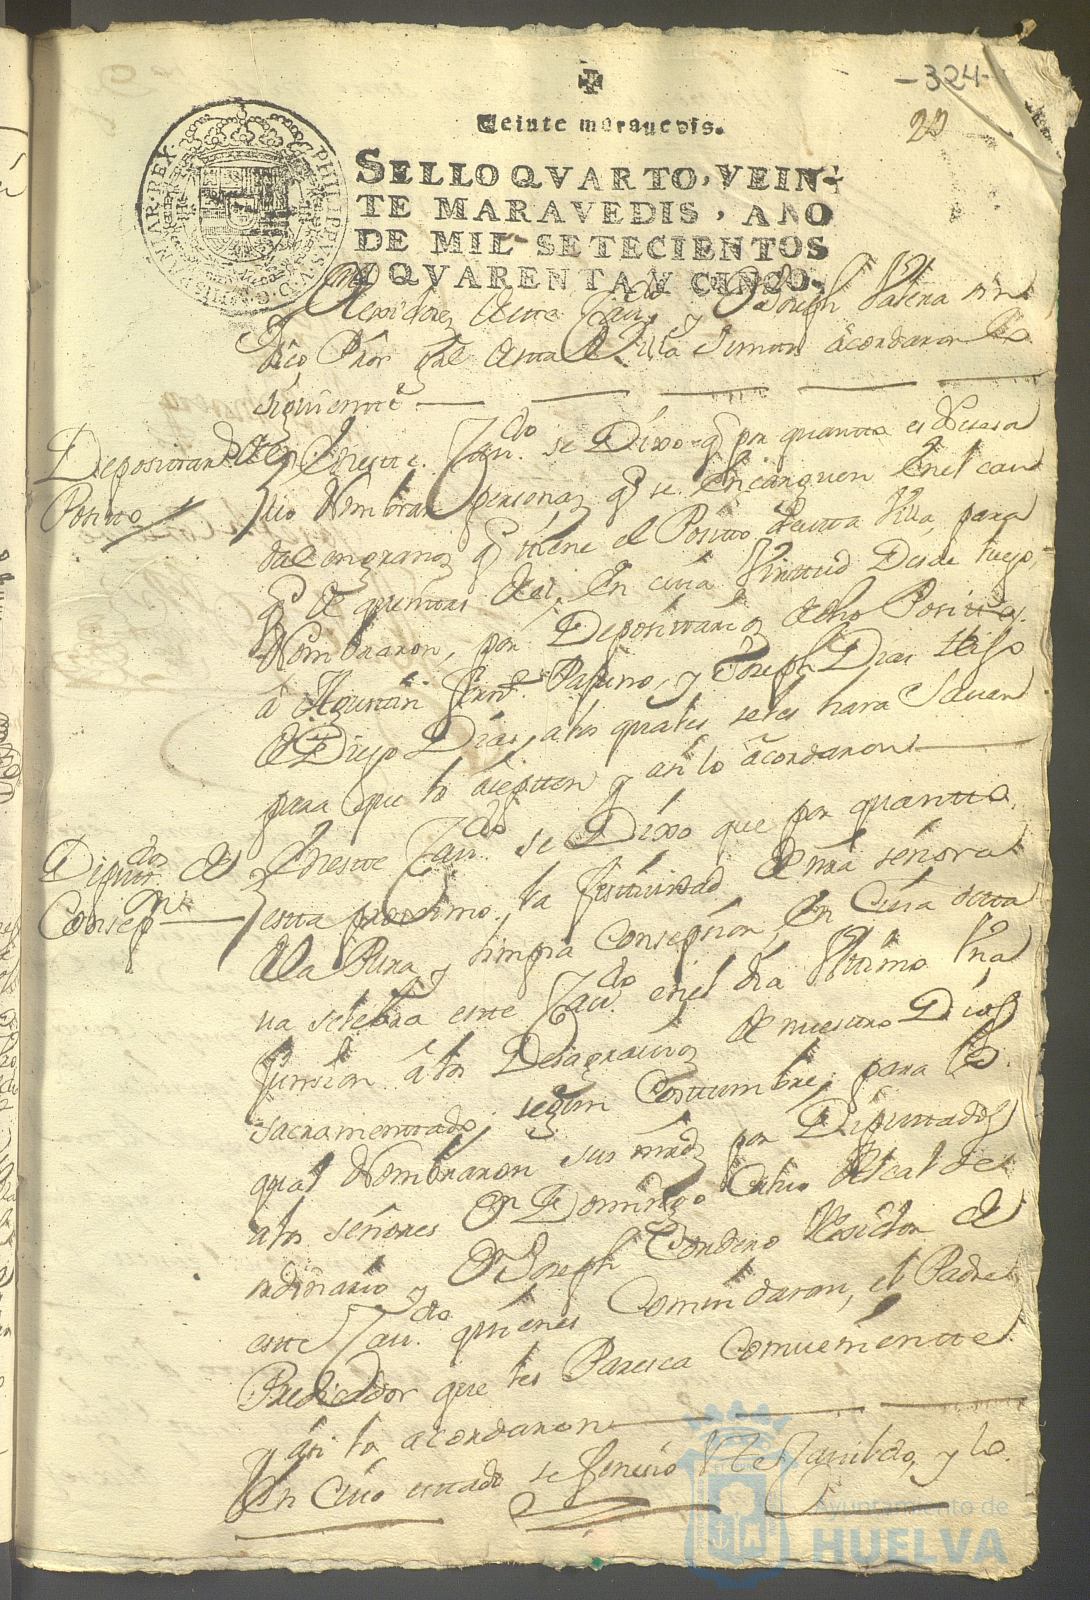 -324-
20
Veinte maravedis.
SELLO QVARTO, VEIN-
TE MARAVEDIS, AÑO
DE MIL SETECIENTOS
Y QVARENTA Y CINCO.
PHILIPPUS V D G HISPANIAR REX
Rexidores deste Cavdo y Dn Joseph
dico Pror gral desta Villa Juntos acordaron lo
siguiente
Depositarios del
Posito
En este Cavdo se Dixo q por quanto es Nesesa
rio Nombrar personas q se Encarguen En el cau
dal en granos q tiene el Posito desta Villa, para
q de quentas del, En cuia Virttud Desde luego
Nombraron, por Depositarios dedho Posito
a Agustin Fernz y Joseph Dias Hijo
de Diego Dias, alos quales seles hara Sauer
para que lo aceptten y asi lo acordaron
Diputdos de
Consepn
En este Cavdo se Dixo que por quantto
esta proximo, la festiuidad de nra señora
de la Pura y limpia Consepsion, En Cuia octta
ua selebra este Cavdo en el dia Ultimo Una
funsion a los Desagrauios de nuestro Dios
sacramentado, segun Costtumbre, para lo
qual Nombraron sus mrds por Diputtados
alos señores Dn Domingo Alcalde
ordinario y Dn Joseph Rexidor de
este Cavdo quienes Comvidaran, el Padre
Predicador que les Paresca Comueniente
y asi lo acordaron
En Cuio estado se fenecio este Cavildo, y lo
Ayuntamiento de
HUELVA